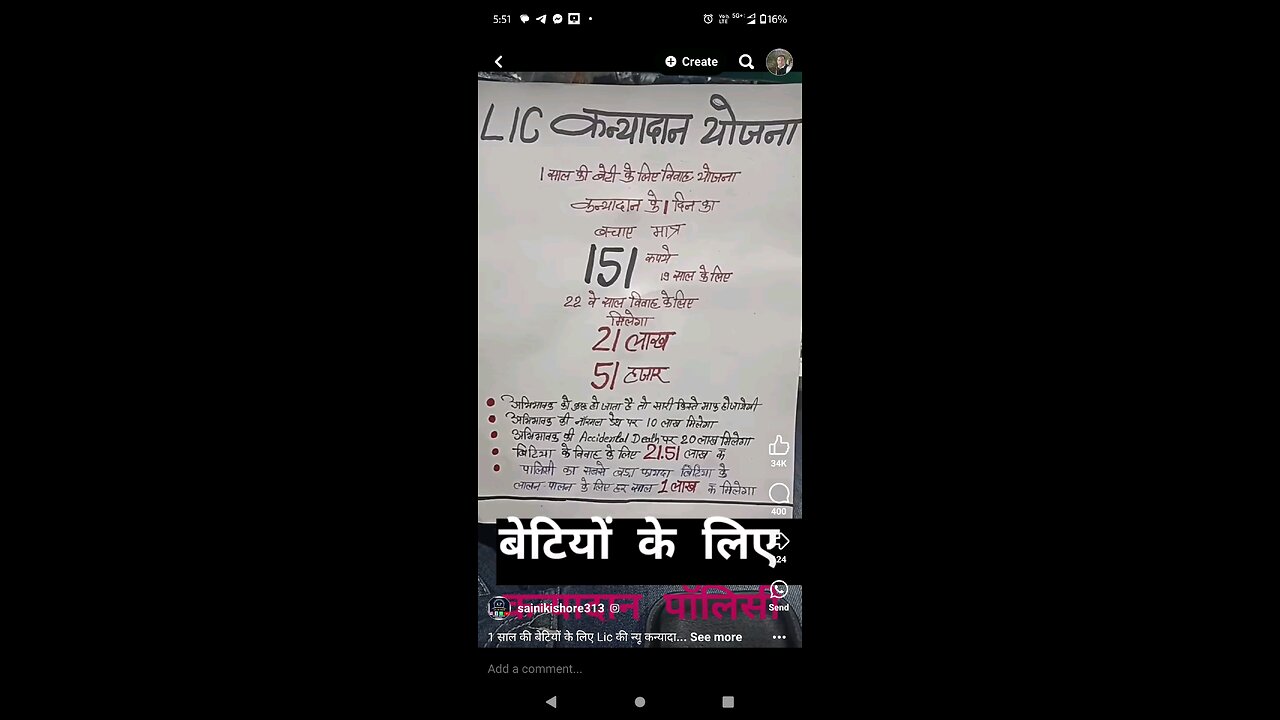 5:51
VoLTE 5G+ 16%
Create
LIC कन्यादान योजना
1 साल की बेटी के लिए विवाह योजना
कन्यादान के 1 दिन का
बचाए मात्र
151 रूपये
19 साल के लिए
22 वे साल विवाह के लिए
मिलेगा
21 लाख
51 हजार
अभिभावक को कुछ हो जाता है तो सारी किस्ते माफ हो जायेगी
अभिभावक की नॉरमल डेथ पर 10 लाख मिलेगा
अभिभावक की Accidental Death पर 20 लाख मिलेगा
बिटिया के विवाह के लिए 21.51 लाख रू
पालिसी का सबसे बड़ा फायदा बिटिया के
लालन पालन के लिए हर साल 1 लाख रू मिलेगा
34K
400
बेटियों के लिए
24
कन्यादान पॉलिसी
Send
sainikishore313
1 साल की बेटियों के लिए Lic की न्यू कन्यादा... See more
Add a comment...